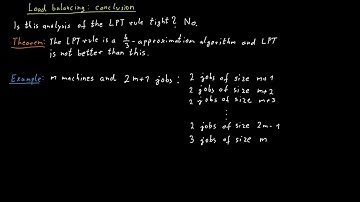 Load balancing: conclusion
Is this analysis of the LPT rule tight? No.
Theorem: The LPT rule is a 4/3-approximation algorithm and LPT
is not better than this.
Example: m machines and 2m+1 jobs: 2 jobs of size m+1
2 jobs of size m+2
2 jobs of size m+3
⋮
2 jobs of size 2m-1
3 jobs of size m